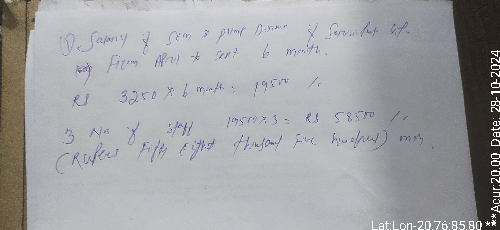 1). Salary of Gem & pump
From April to Sept 6 month.
RS 3250 × 6 month = 19500 /.
3 No of staff 19500 × 3 = RS 58500 /.
(Rupees Fifty Eight thousand Five hundred)
Lat:Lon-20.76:85.80 ***Acur:20.00 Date: 28-10-2024